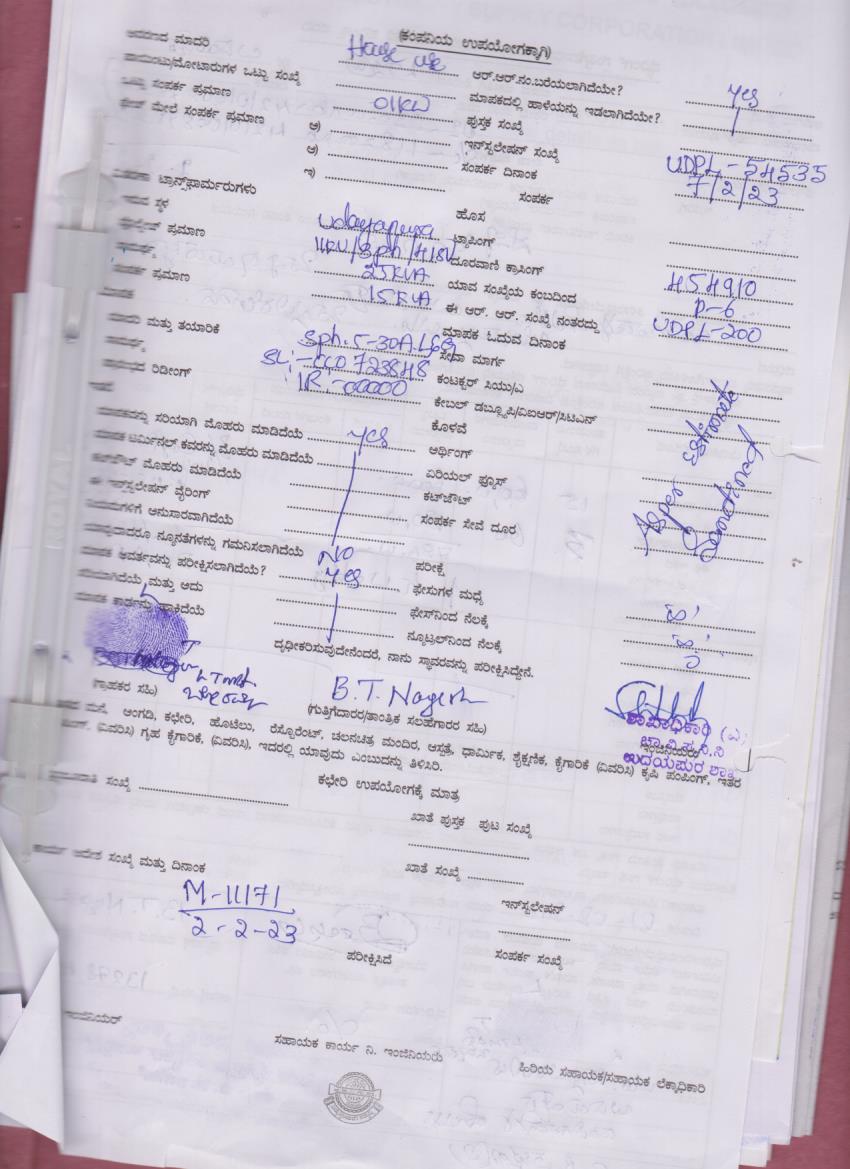 (ಕಂಪನಿಯ ಉಪಯೋಗಕ್ಕಾಗಿ)
ಮಾದರಿ House use ಆರ್.ಆರ್.ನಂ.ಬರೆಯಲಾಗಿದೆಯೇ? yes
ಒಟ್ಟು ಸಂಖ್ಯೆ ಮಾಪಕದಲ್ಲಿ ಹಾಳೆಯನ್ನು ಇಡಲಾಗಿದೆಯೇ?
ಒಟ್ಟು ಸಂಪರ್ಕ ಪ್ರಮಾಣ 01KW ಪುಸ್ತಕ ಸಂಖ್ಯೆ
ಮೇಲೆ ಸಂಪರ್ಕ ಪ್ರಮಾಣ ಅ) ಇನ್‌ಸ್ಟಲೇಷನ್ ಸಂಖ್ಯೆ UDPL-54535
ಆ) ಸಂಪರ್ಕ ದಿನಾಂಕ 7/2/23
ಇ) ಸಂಪರ್ಕ
ಟ್ರಾನ್ಸ್‌ಫಾರ್ಮರುಗಳು ಹೊಸ
ಇರುವ ಸ್ಥಳ Udayapura ಟ್ಯಾಪಿಂಗ್
ಪ್ರಮಾಣ 11KV/3ph/415V ದೂರವಾಣಿ ಕ್ರಾಸಿಂಗ್
25KVA ಯಾವ ಸಂಖ್ಯೆಯ ಕಂಬದಿಂದ 454910
ಸಂಪರ್ಕ ಪ್ರಮಾಣ 15KVA ಈ ಆರ್. ಆರ್. ಸಂಖ್ಯೆ ನಂತರದ್ದು P-6
ಮಾಪಕ ಓದುವ ದಿನಾಂಕ UDPL-200
ಮಾದರಿ ಮತ್ತು ತಯಾರಿಕೆ ಸೇವಾ ಮಾರ್ಗ
SL:- 723848 ಕಂಟಕ್ಟರ್ ಸಿಯು/ಎ
ರಿಡಿಂಗ್ IR:-00000 ಕೇಬಲ್ ಡಬ್ಲ್ಯೂಪಿ/ವಿಐಆರ್/ಸಿಟಿಎನ್
ಕೊಳವೆ
ಮಾಪಕವನ್ನು ಸರಿಯಾಗಿ ಮೊಹರು ಮಾಡಿದೆಯೆ yes ಅರ್ಥಿಂಗ್
ಮಾಪಕ ಟರ್ಮಿನಲ್ ಕವರನ್ನು ಮೊಹರು ಮಾಡಿದೆಯೆ ಏರಿಯಲ್ ಫ್ಯೂಸ್
ಮೊಹರು ಮಾಡಿದೆಯೆ ಕಟ್‌ಔಟ್
ಈ ಇನ್‌ಸ್ಟಲೇಷನ್ ವೈರಿಂಗ್ ಸಂಪರ್ಕ ಸೇವೆ ದೂರ
ನಿಯಮಗಳಿಗೆ ಅನುಸಾರವಾಗಿದೆಯೆ
As per Sanctioned estimate
ಯಾವುದಾದರೂ ನ್ಯೂನತೆಗಳನ್ನು ಗಮನಿಸಲಾಗಿದೆಯೆ NO ಪರೀಕ್ಷೆ
ಮಾಪಕ ಆವರ್ತವನ್ನು ಪರೀಕ್ಷಿಸಲಾಗಿದೆಯೆ? yes ಫೇಸುಗಳ ಮಧ್ಯೆ
ಸರಿಯಾಗಿದೆಯೆ ಮತ್ತು ಅದು ಫೇಸ್‌ನಿಂದ ನೆಲಕ್ಕೆ
ಮಾಪಕ ಕಾರ್ಡನ್ನು ಹಾಕಿದೆಯೆ ನ್ಯೂಟ್ರಲ್‌ನಿಂದ ನೆಲಕ್ಕೆ
ದೃಢೀಕರಿಸುವುದೇನೆಂದರೆ, ನಾನು ಸ್ಥಾವರವನ್ನು ಪರೀಕ್ಷಿಸಿದ್ದೇನೆ.
B.T. Nagesh
(ಗ್ರಾಹಕರ ಸಹಿ) (ಗುತ್ತಿಗೆದಾರರ/ತಾಂತ್ರಿಕ ಸಲಹೆಗಾರರ ಸಹಿ)
ಶಾಖಾಧಿಕಾರಿ
ಇಂಜಿನಿಯರು
ಚಾ.ವಿ.ಸ.ನಿ.ನಿ
ಉದಯಪುರ ಶಾಖೆ
ಮನೆ, ಅಂಗಡಿ, ಕಛೇರಿ, ಹೊಟೆಲು, ರೆಸ್ಟೋರೆಂಟ್, ಚಲನಚಿತ್ರ ಮಂದಿರ, ಆಸ್ಪತ್ರೆ, ಧಾರ್ಮಿಕ, ಶೈಕ್ಷಣಿಕ, ಕೈಗಾರಿಕೆ (ವಿವರಿಸಿ) ಕೃಷಿ ಪಂಪಿಂಗ್, ಇತರ
(ವಿವರಿಸಿ) ಗೃಹ ಕೈಗಾರಿಕೆ, (ವಿವರಿಸಿ), ಇದರಲ್ಲಿ ಯಾವುದು ಎಂಬುದನ್ನು ತಿಳಿಸಿರಿ.
ಕಛೇರಿ ಉಪಯೋಗಕ್ಕೆ ಮಾತ್ರ
ಸಂಖ್ಯೆ ಖಾತೆ ಪುಸ್ತಕ ಪುಟ ಸಂಖ್ಯೆ
ಕಾರ್ಯ ಆದೇಶ ಸಂಖ್ಯೆ ಮತ್ತು ದಿನಾಂಕ ಖಾತೆ ಸಂಖ್ಯೆ
M-11171
2-2-23
ಇನ್‌ಸ್ಟಲೇಷನ್
ಪರೀಕ್ಷಿಸಿದೆ ಸಂಪರ್ಕ ಸಂಖ್ಯೆ
ಇಂಜಿನಿಯರ್ ಸಹಾಯಕ ಕಾರ್ಯ ನಿ. ಇಂಜಿನಿಯರು ಹಿರಿಯ ಸಹಾಯಕ/ಸಹಾಯಕ ಲೆಕ್ಕಾಧಿಕಾರಿ